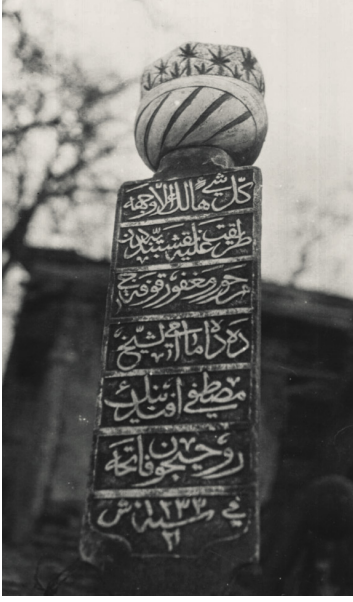 كل شيئ هالك الا وجهه
طريقت عليه نقشبنديه دن
مرحوم و مغفور قوغه جي
دده دامادى الشيخ
مصطفى افندينك
روحيچون فاتحه
في سنة ١٢٣٣ ش
٢١